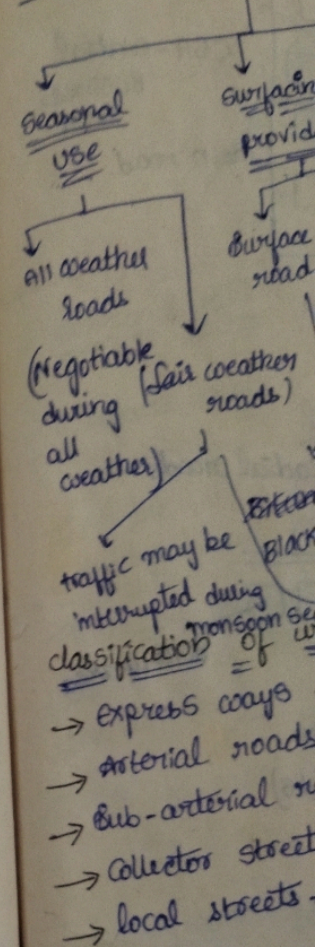 Seasonal
use
Surfacin
provid
All weather
roads
Surface
road
(Negotiable
during
all
weather)
(fair weather
roads)
traffic may be
interrupted during
monsoon se
Black
classification of u
→ Express ways
→ Arterial roads
→ Sub-arterial r
→ Collector street
→ local streets.